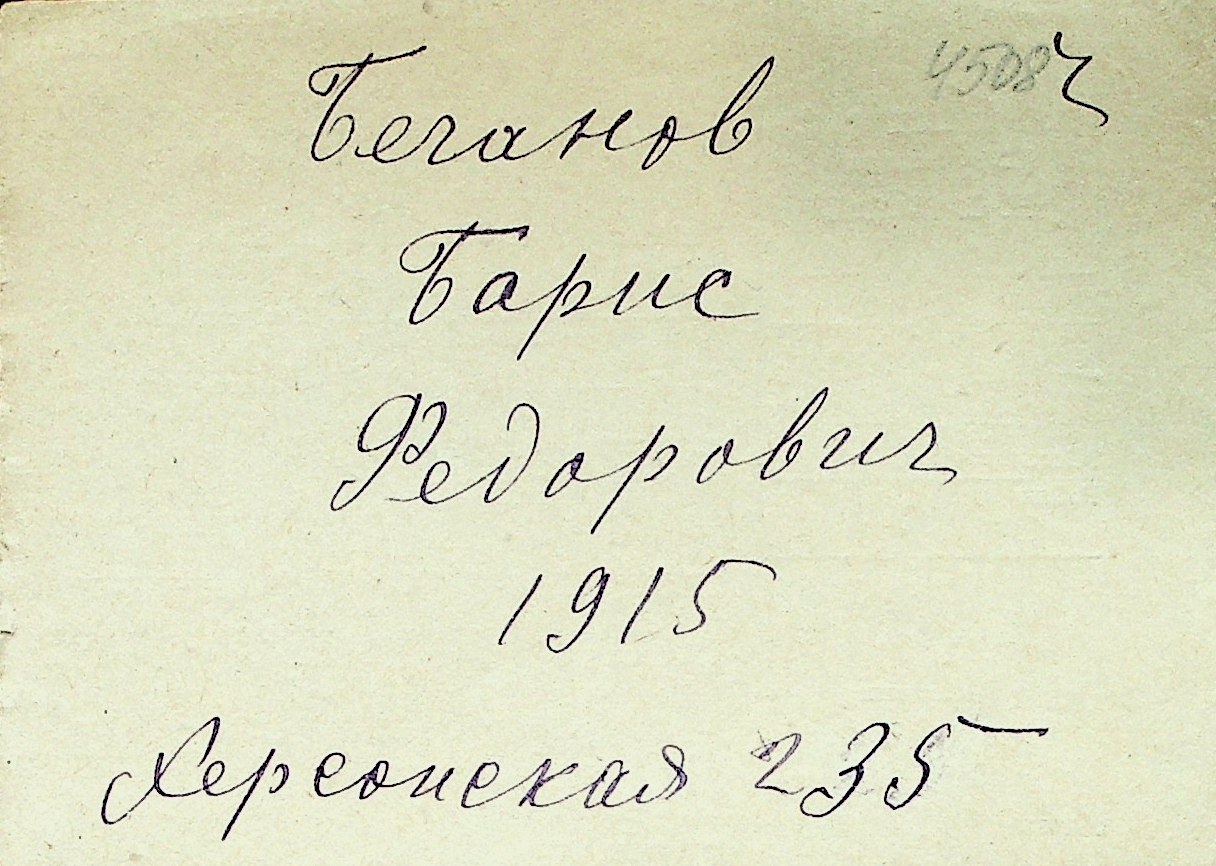 4508 ч
Беганов
Борис
Федорович
1915
Херсонская 235